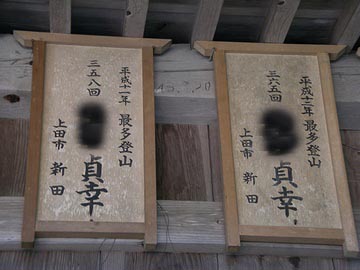 平成十二年 最多登山
三六五回
貞幸
上田市 新田
平成十一年 最多登山
三五八回
貞幸
上田市 新田